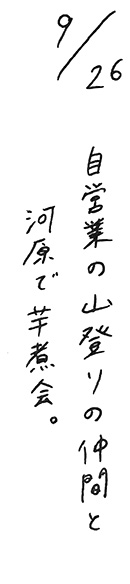 9/26
自営業の山登りの仲間と
河原で芋煮会。